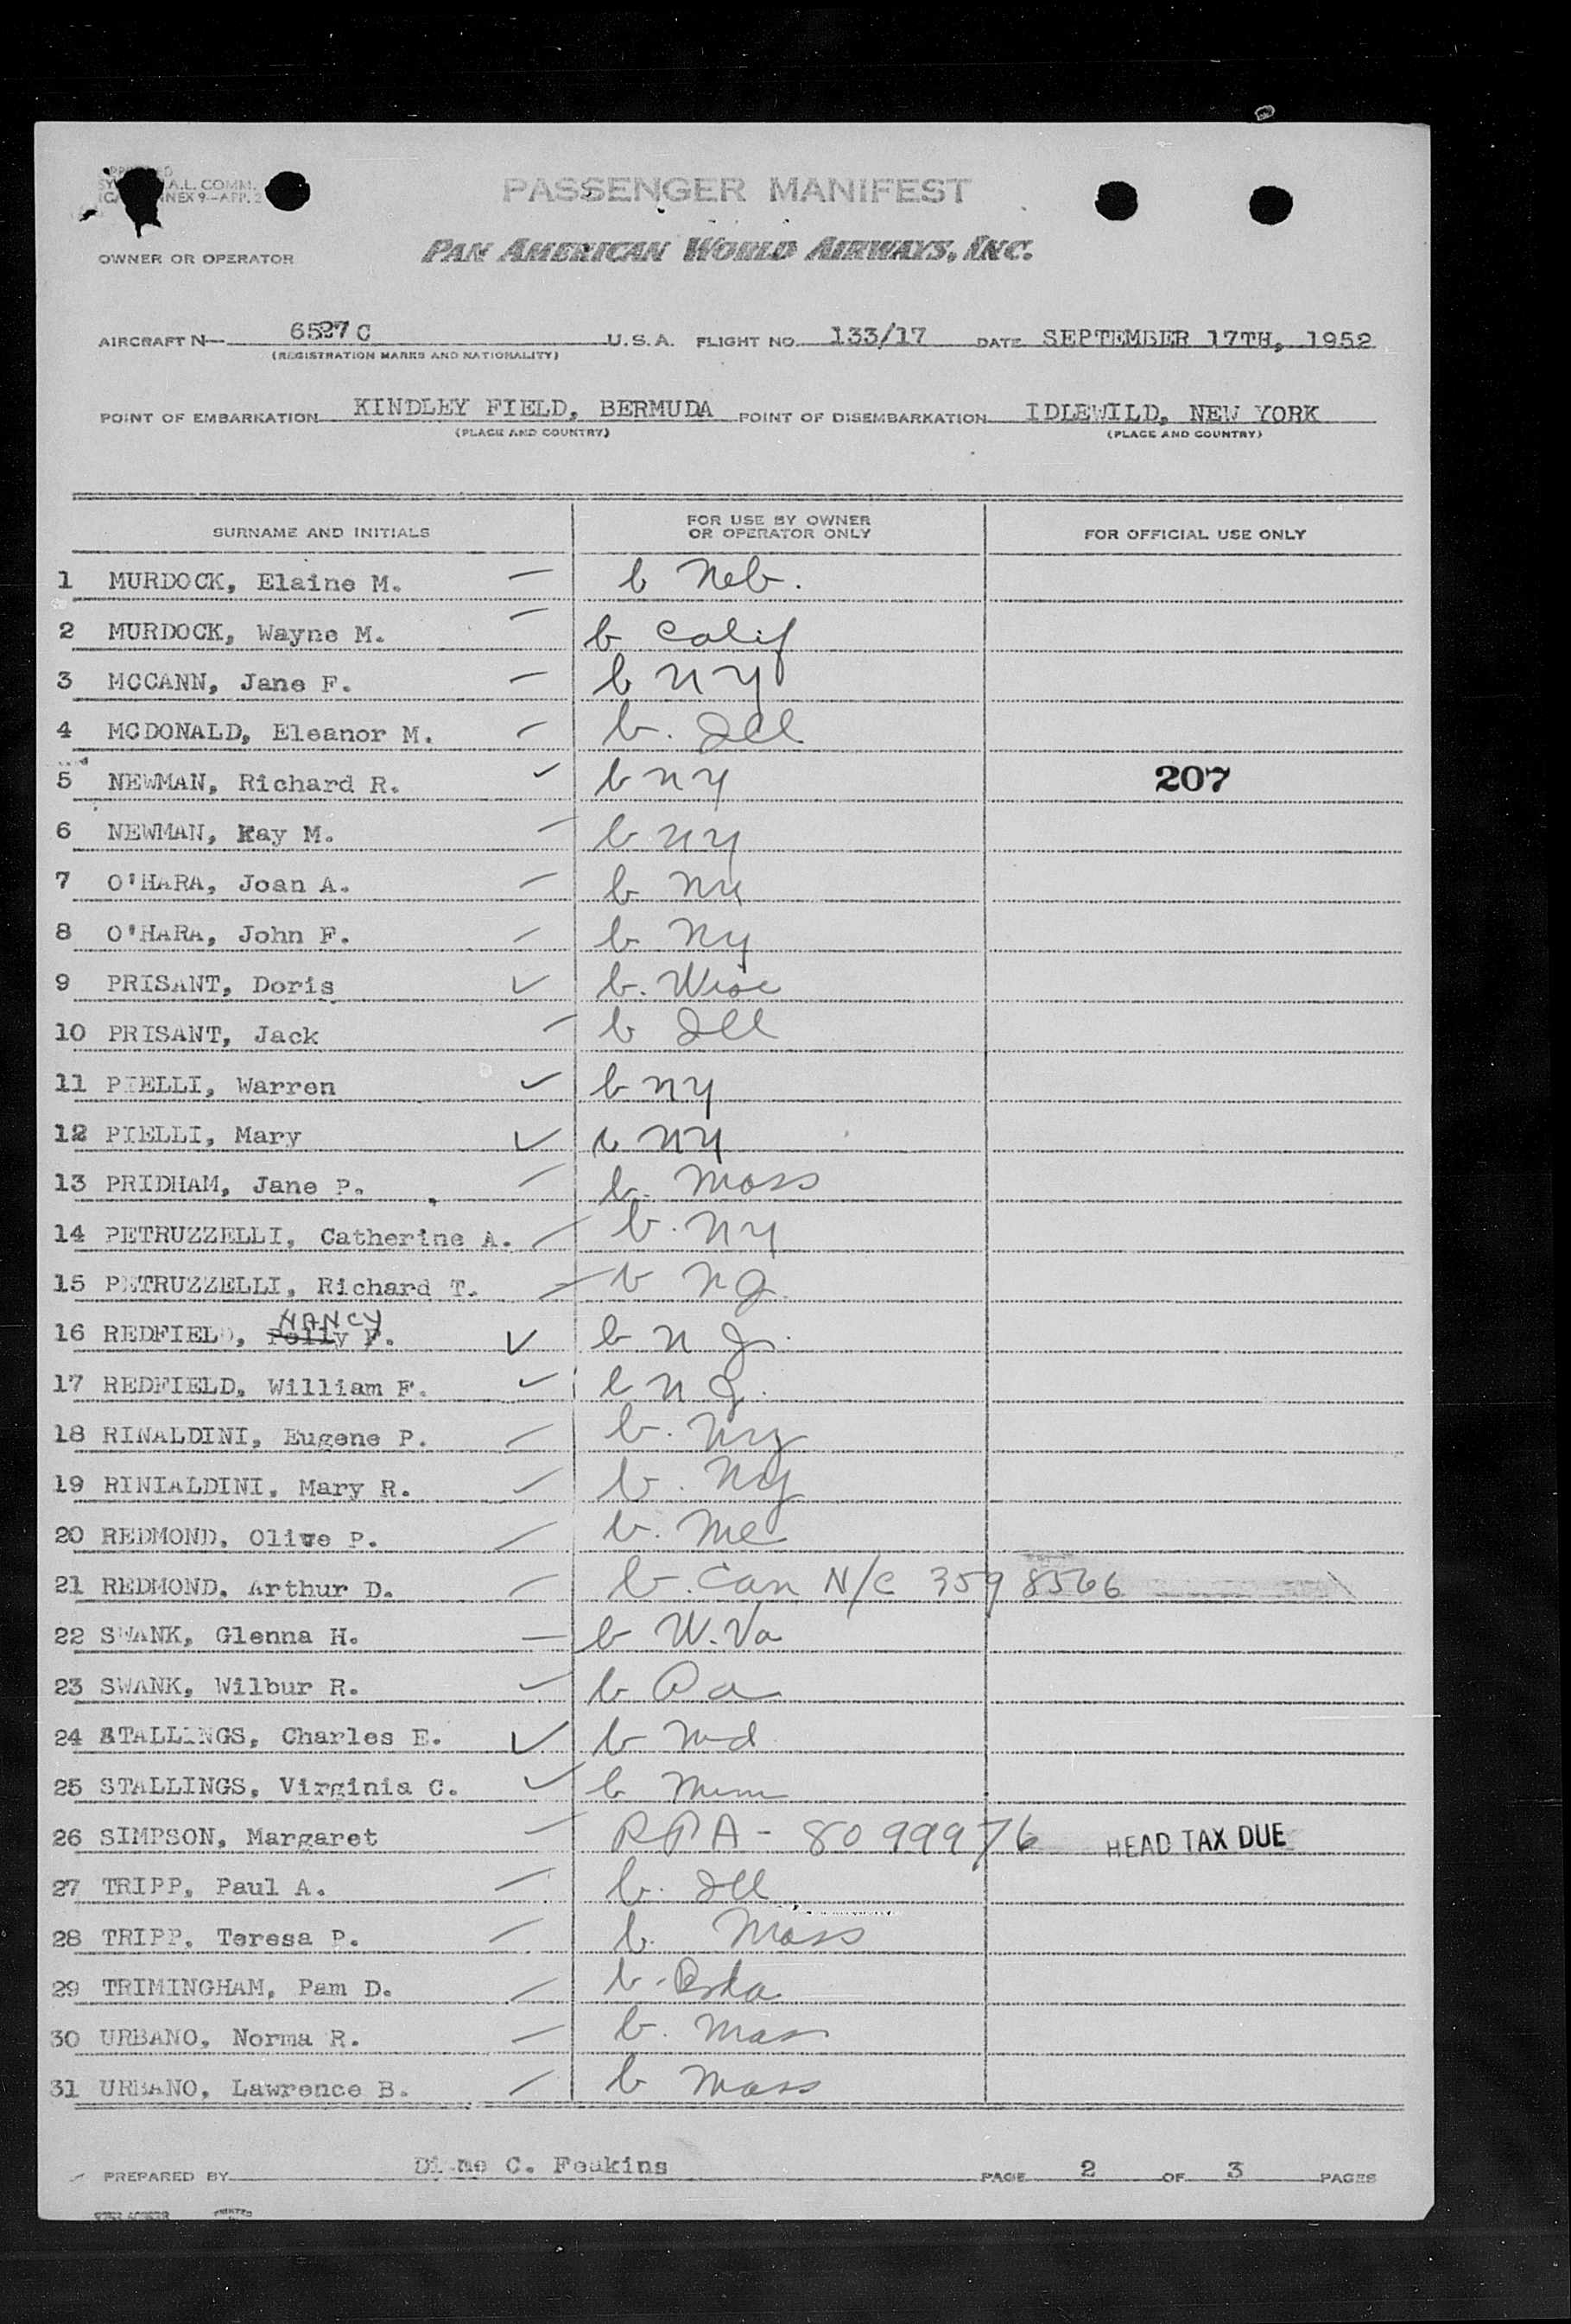 A.L. COMM.
ANNEX 9—APP. 2
PASSENGER MANIFEST
OWNER OR OPERATOR PAN AMERICAN WORLD AIRWAYS, INC.
AIRCRAFT N— 6527C U.S.A. FLIGHT NO. 133/17 DATE SEPTEMBER 17TH, 1952
(REGISTRATION MARKS AND NATIONALITY)
POINT OF EMBARKATION KINDLEY FIELD, BERMUDA POINT OF DISEMBARKATION IDLEWILD, NEW YORK
(PLACE AND COUNTRY) (PLACE AND COUNTRY)
SURNAME AND INITIALS FOR USE BY OWNER OR OPERATOR ONLY FOR OFFICIAL USE ONLY
1 MURDOCK, Elaine M. — b Neb.
2 MURDOCK, Wayne M. — b Calif
3 MCCANN, Jane F. — b NY
4 MCDONALD, Eleanor M. — b. Ill
5 NEWMAN, Richard R. ✓ b NY 207
6 NEWMAN, Kay M. — b NY
7 O'HARA, Joan A. — b NY
8 O'HARA, John F. — b NY
9 PRISANT, Doris ✓ b. Wisc
10 PRISANT, Jack — b Ill
11 PIELLI, Warren ✓ b NY
12 PIELLI, Mary ✓ b NY
13 PRIDHAM, Jane P. — b. Mass
14 PETRUZZELLI, Catherine A. — b. NY
15 PETRUZZELLI, Richard T. — b NJ.
16 REDFIELD, Polly F. NANCY ✓ b NJ.
17 REDFIELD, William F. ✓ b NJ.
18 RINALDINI, Eugene P. — b. NY
19 RINIALDINI, Mary R. — b. NY
20 REDMOND, Olive P. — b. Me
21 REDMOND. Arthur D. — b. Can N/C 3598566
22 SWANK, Glenna H. — b W.Va
23 SWANK, Wilbur R. — b Pa
24 STALLINGS, Charles E. ✓ b Md
25 STALLINGS, Virginia C. ✓ b Minn
26 SIMPSON, Margaret — RPA - 8099976 HEAD TAX DUE
27 TRIPP, Paul A. — b. Ill
28 TRIPP, Teresa P. — b. Mass
29 TRIMINGHAM, Pam D. — b. Bda
30 URBANO, Norma R. — b. Mass
31 URBANO, Lawrence B. — b Mass
PREPARED BY Diane C. Feakins PAGE 2 OF 3 PAGES